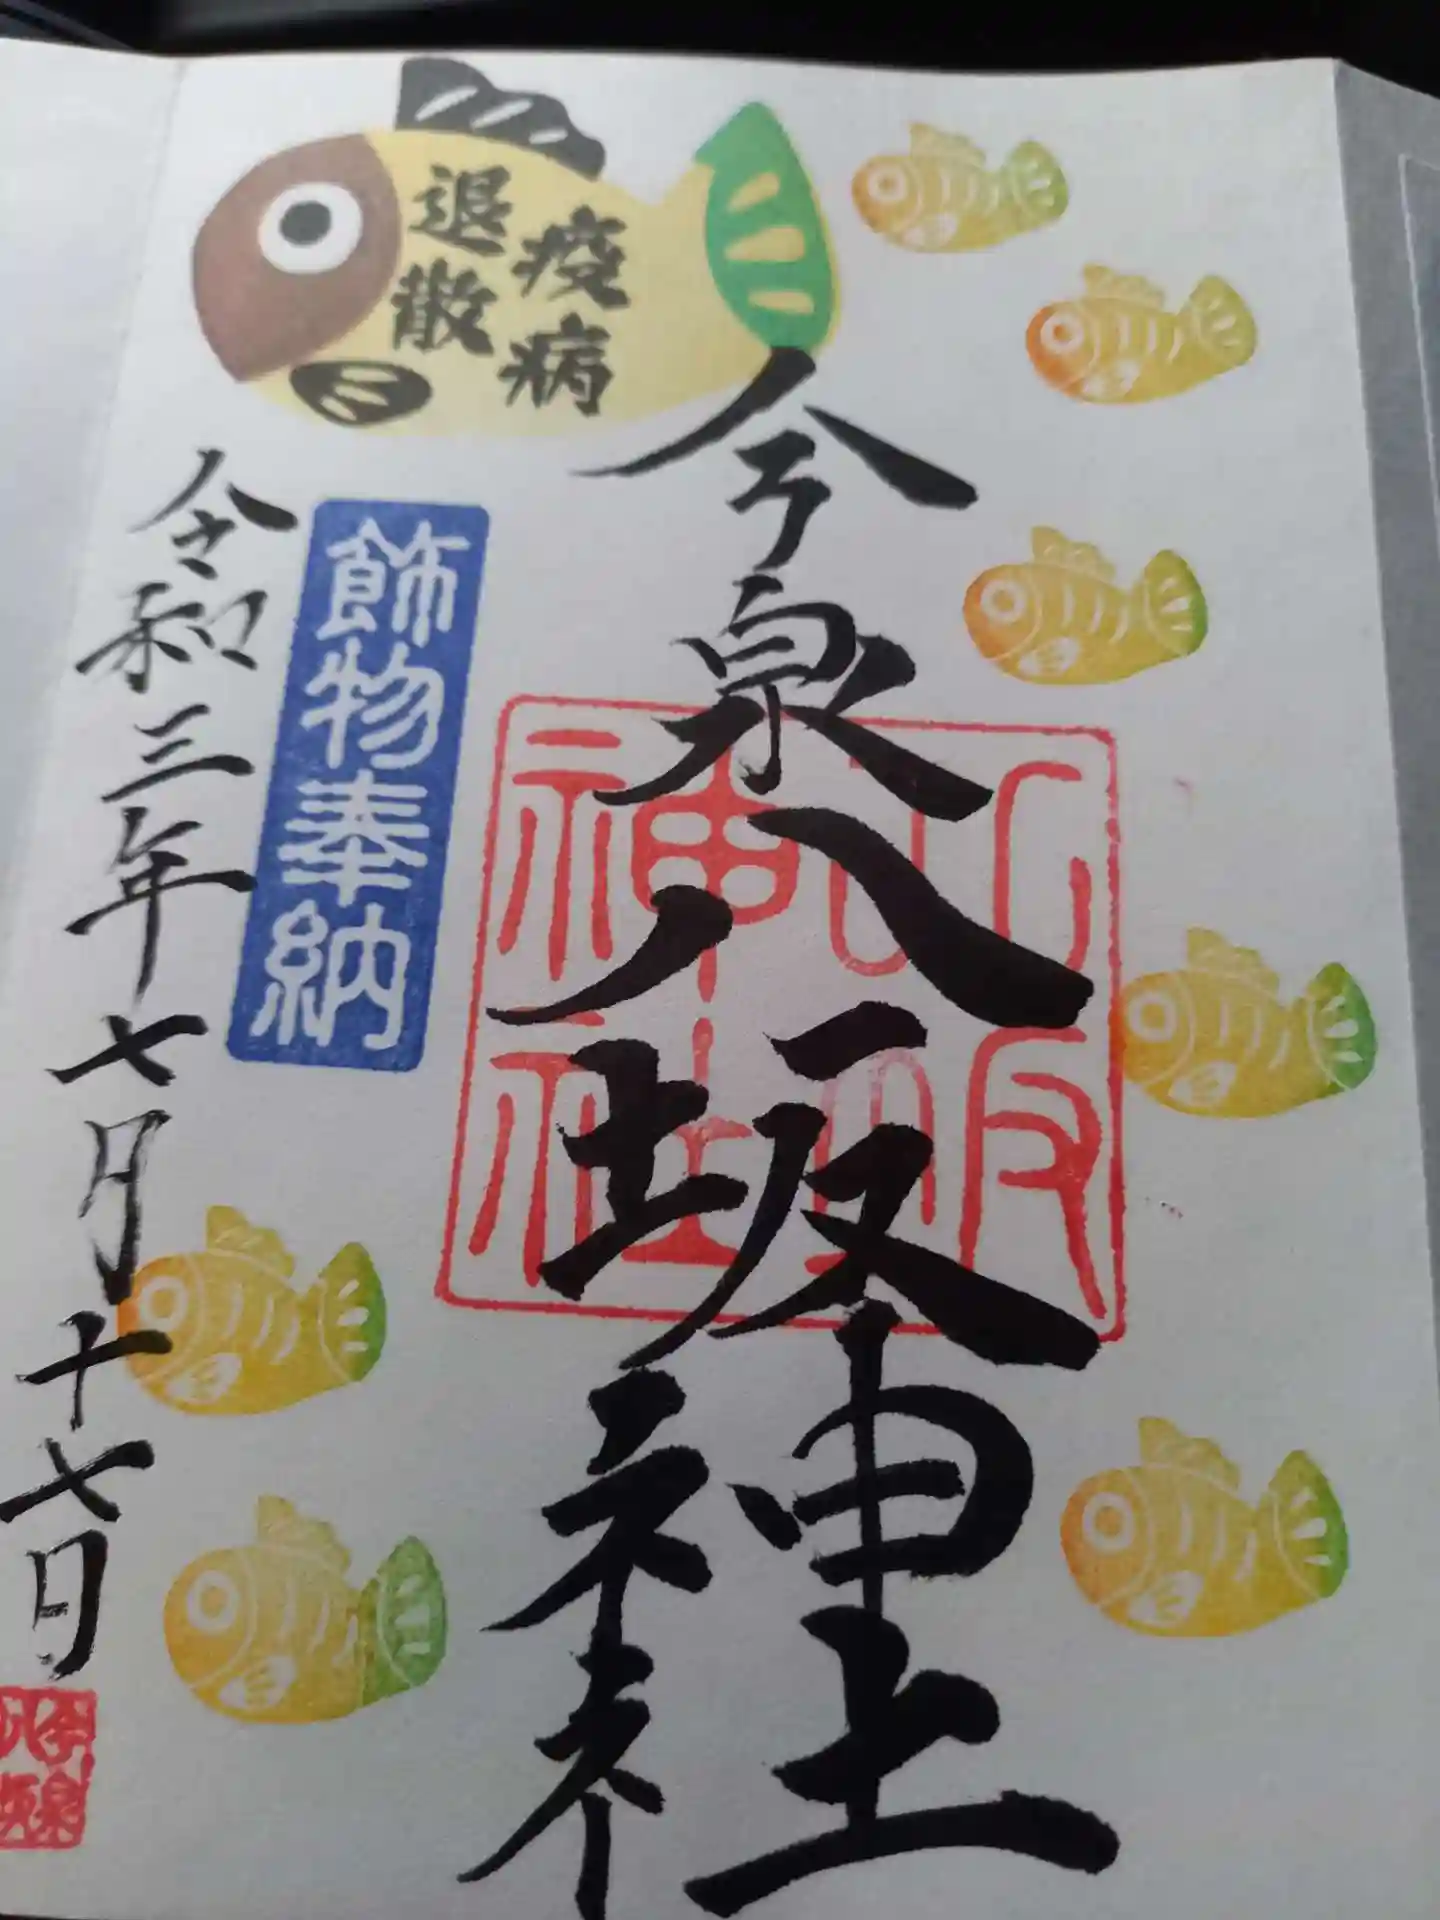 疫病
退散
今泉八坂神社
八坂
神社
飾物奉納
令和三年七月十七日
今泉
八坂